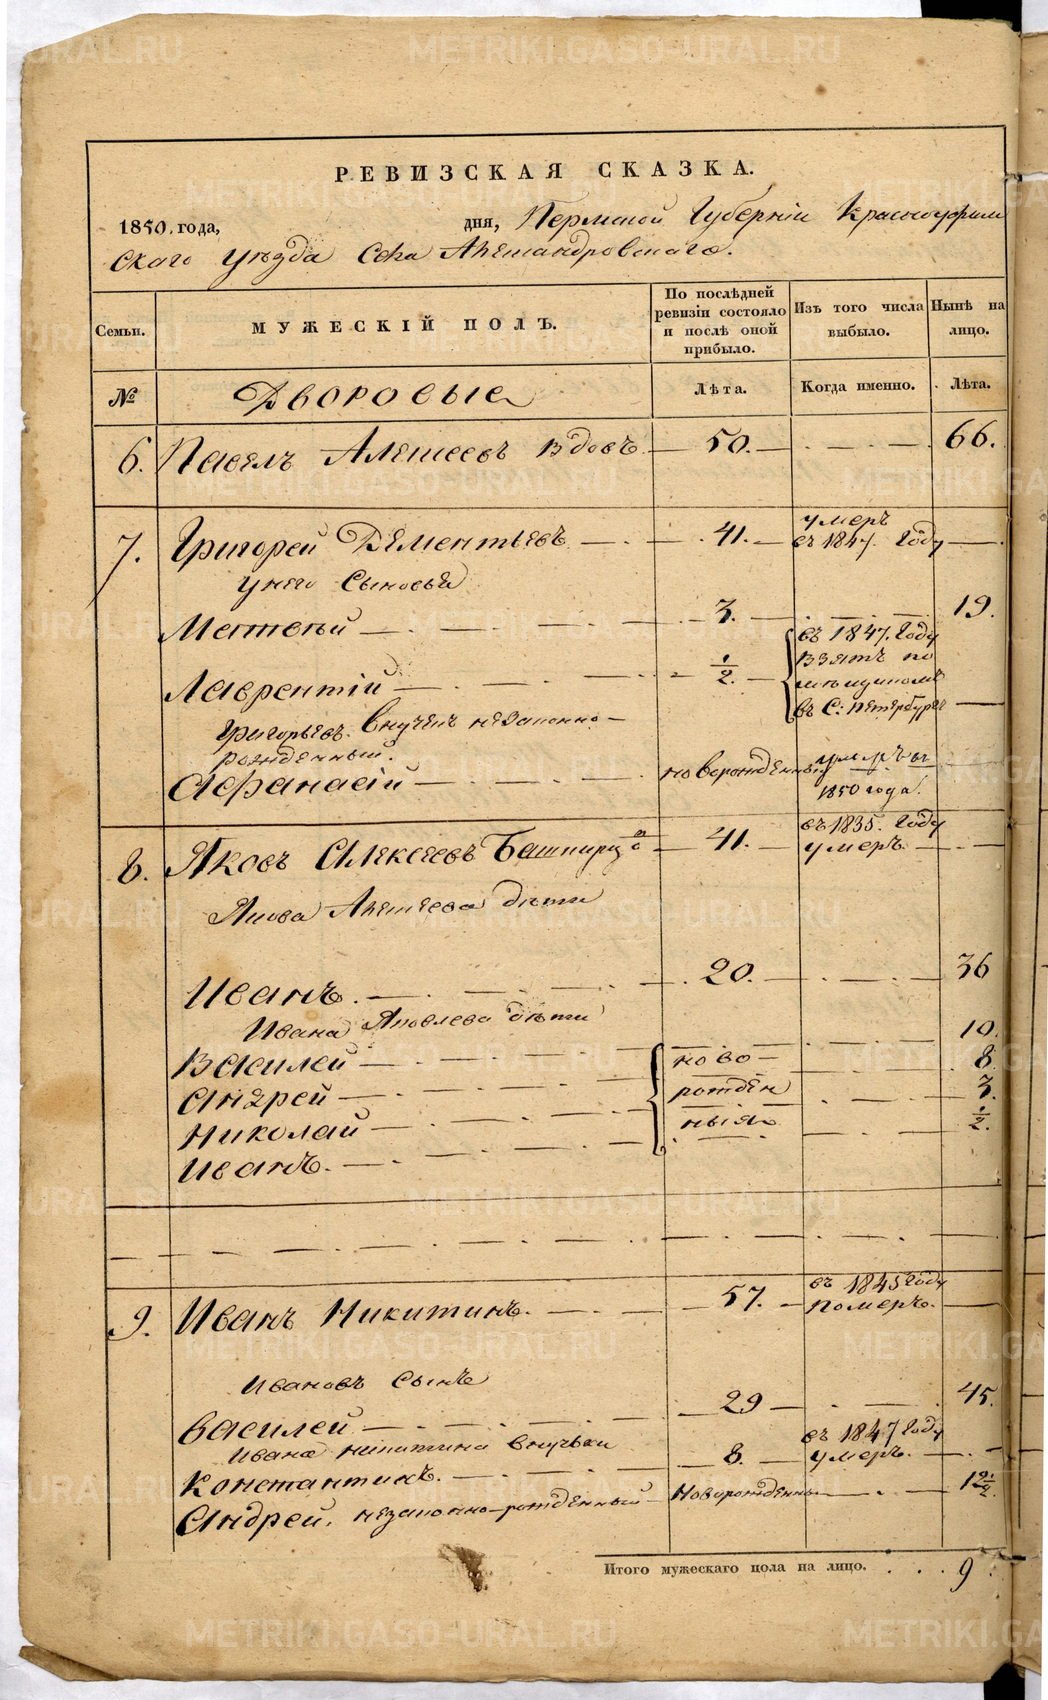 РЕВИЗСКАЯ СКАЗКА.
1850. года, дня, Пермской Губерніи Красноуфим
скаго уѣзда Села Александровскаго.
Семьи.
МУЖЕСКІЙ ПОЛЪ.
По послѣдней ревизіи состояло и послѣ оной прибыло.
Изъ того числа выбыло.
Нынѣ на лицо.
№
Дворовые
Лѣта.
Когда именно.
Лѣта.
6. Павелъ Алексеевъ вдовъ 50. 66.
7. Григорей Дементьевъ 41. умеръ въ 1847. году
у него сыновья
Матвей 3. 19.
Лаврентій ½. въ 1847. году взятъ по въ С: Петербургъ
Григорьевъ внучекъ незаконно-
рожденный.
Афанасій новорожденный умеръ въ 1850 года.
8. Яковъ Алексеевъ Башкирцо 41. въ 1835. году умеръ
Якова Алексеева дѣти
Иванъ. 20. 36
Ивана Яковлева дѣти
Василей 10.
Андрей 8.
Николай 3.
Иванъ. ½.
ново
рожден
ныя
9. Иванъ Никитинъ. 57. въ 1845 году померъ.
Ивановъ сынъ
Василей 29 45.
Ивана Никитина внучьки
Константинъ. 8. въ 1847 году умеръ.
Андрей. незаконно-рожденный Новорожденны 1½
Итого мужескаго пола на лицо. 9.
METRIKI.GASO-URAL.RU